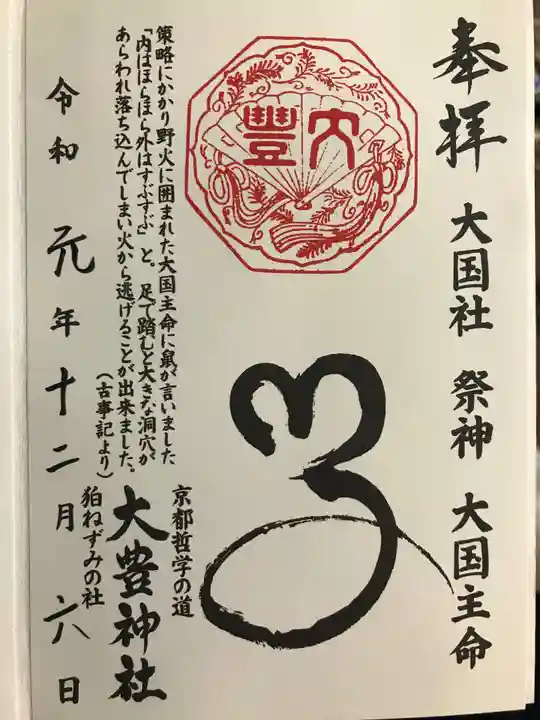 奉拝 大国社 祭神 大国主命
大豊
子
策略にかかり野火に囲まれた大国主命に鼠が言いました
「内はほらほら外はすぶすぶ」と。足で踏むと大きな洞穴が
あらわれ落ち込んでしまい火から逃げることが出来ました。
(古事記より)
京都哲学の道
大豊神社
狛ねずみの社
令和元年十二月六日